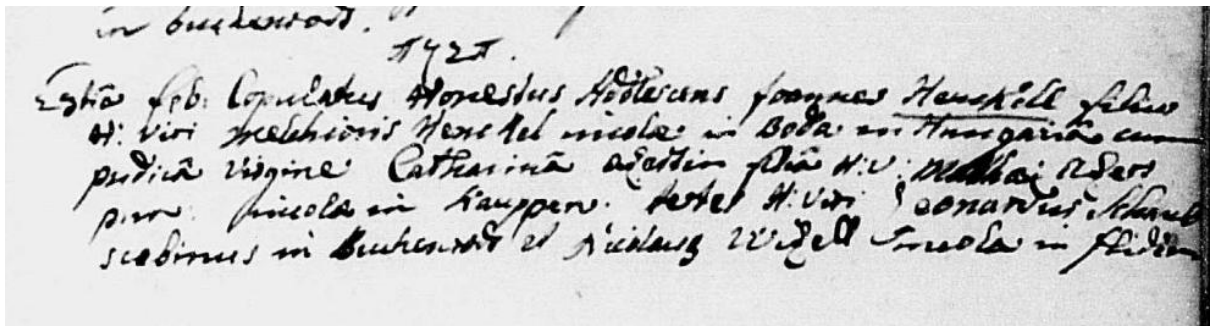 in buchenrodt.
1727.
27tiā feb: Copulatus Honestus Adolescens Joannes Henckell filius
H: viri Melchioris Henckel incolæ in Boda in Hungariā cum
pudicā virgine Catharinā filiā H: V: Mathæi
p m: incolæ in Kauppen. testes H: viri Leonardus Schaub
scabinus in Buchenrodt et Nicolaus Incola in